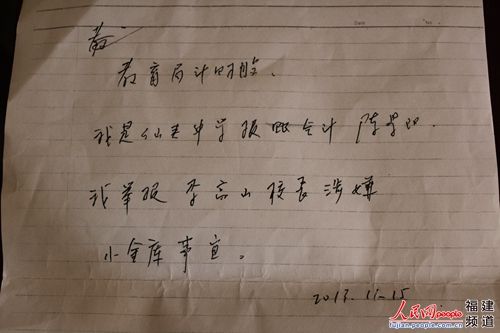 Date No.
教育局计财股.
我是仙里中学报账会计 陈
我举报 李高山 校长涉嫌
小金库事宜。
2013.11-15
人民网 people 福建频道
fujian.people.com.cn